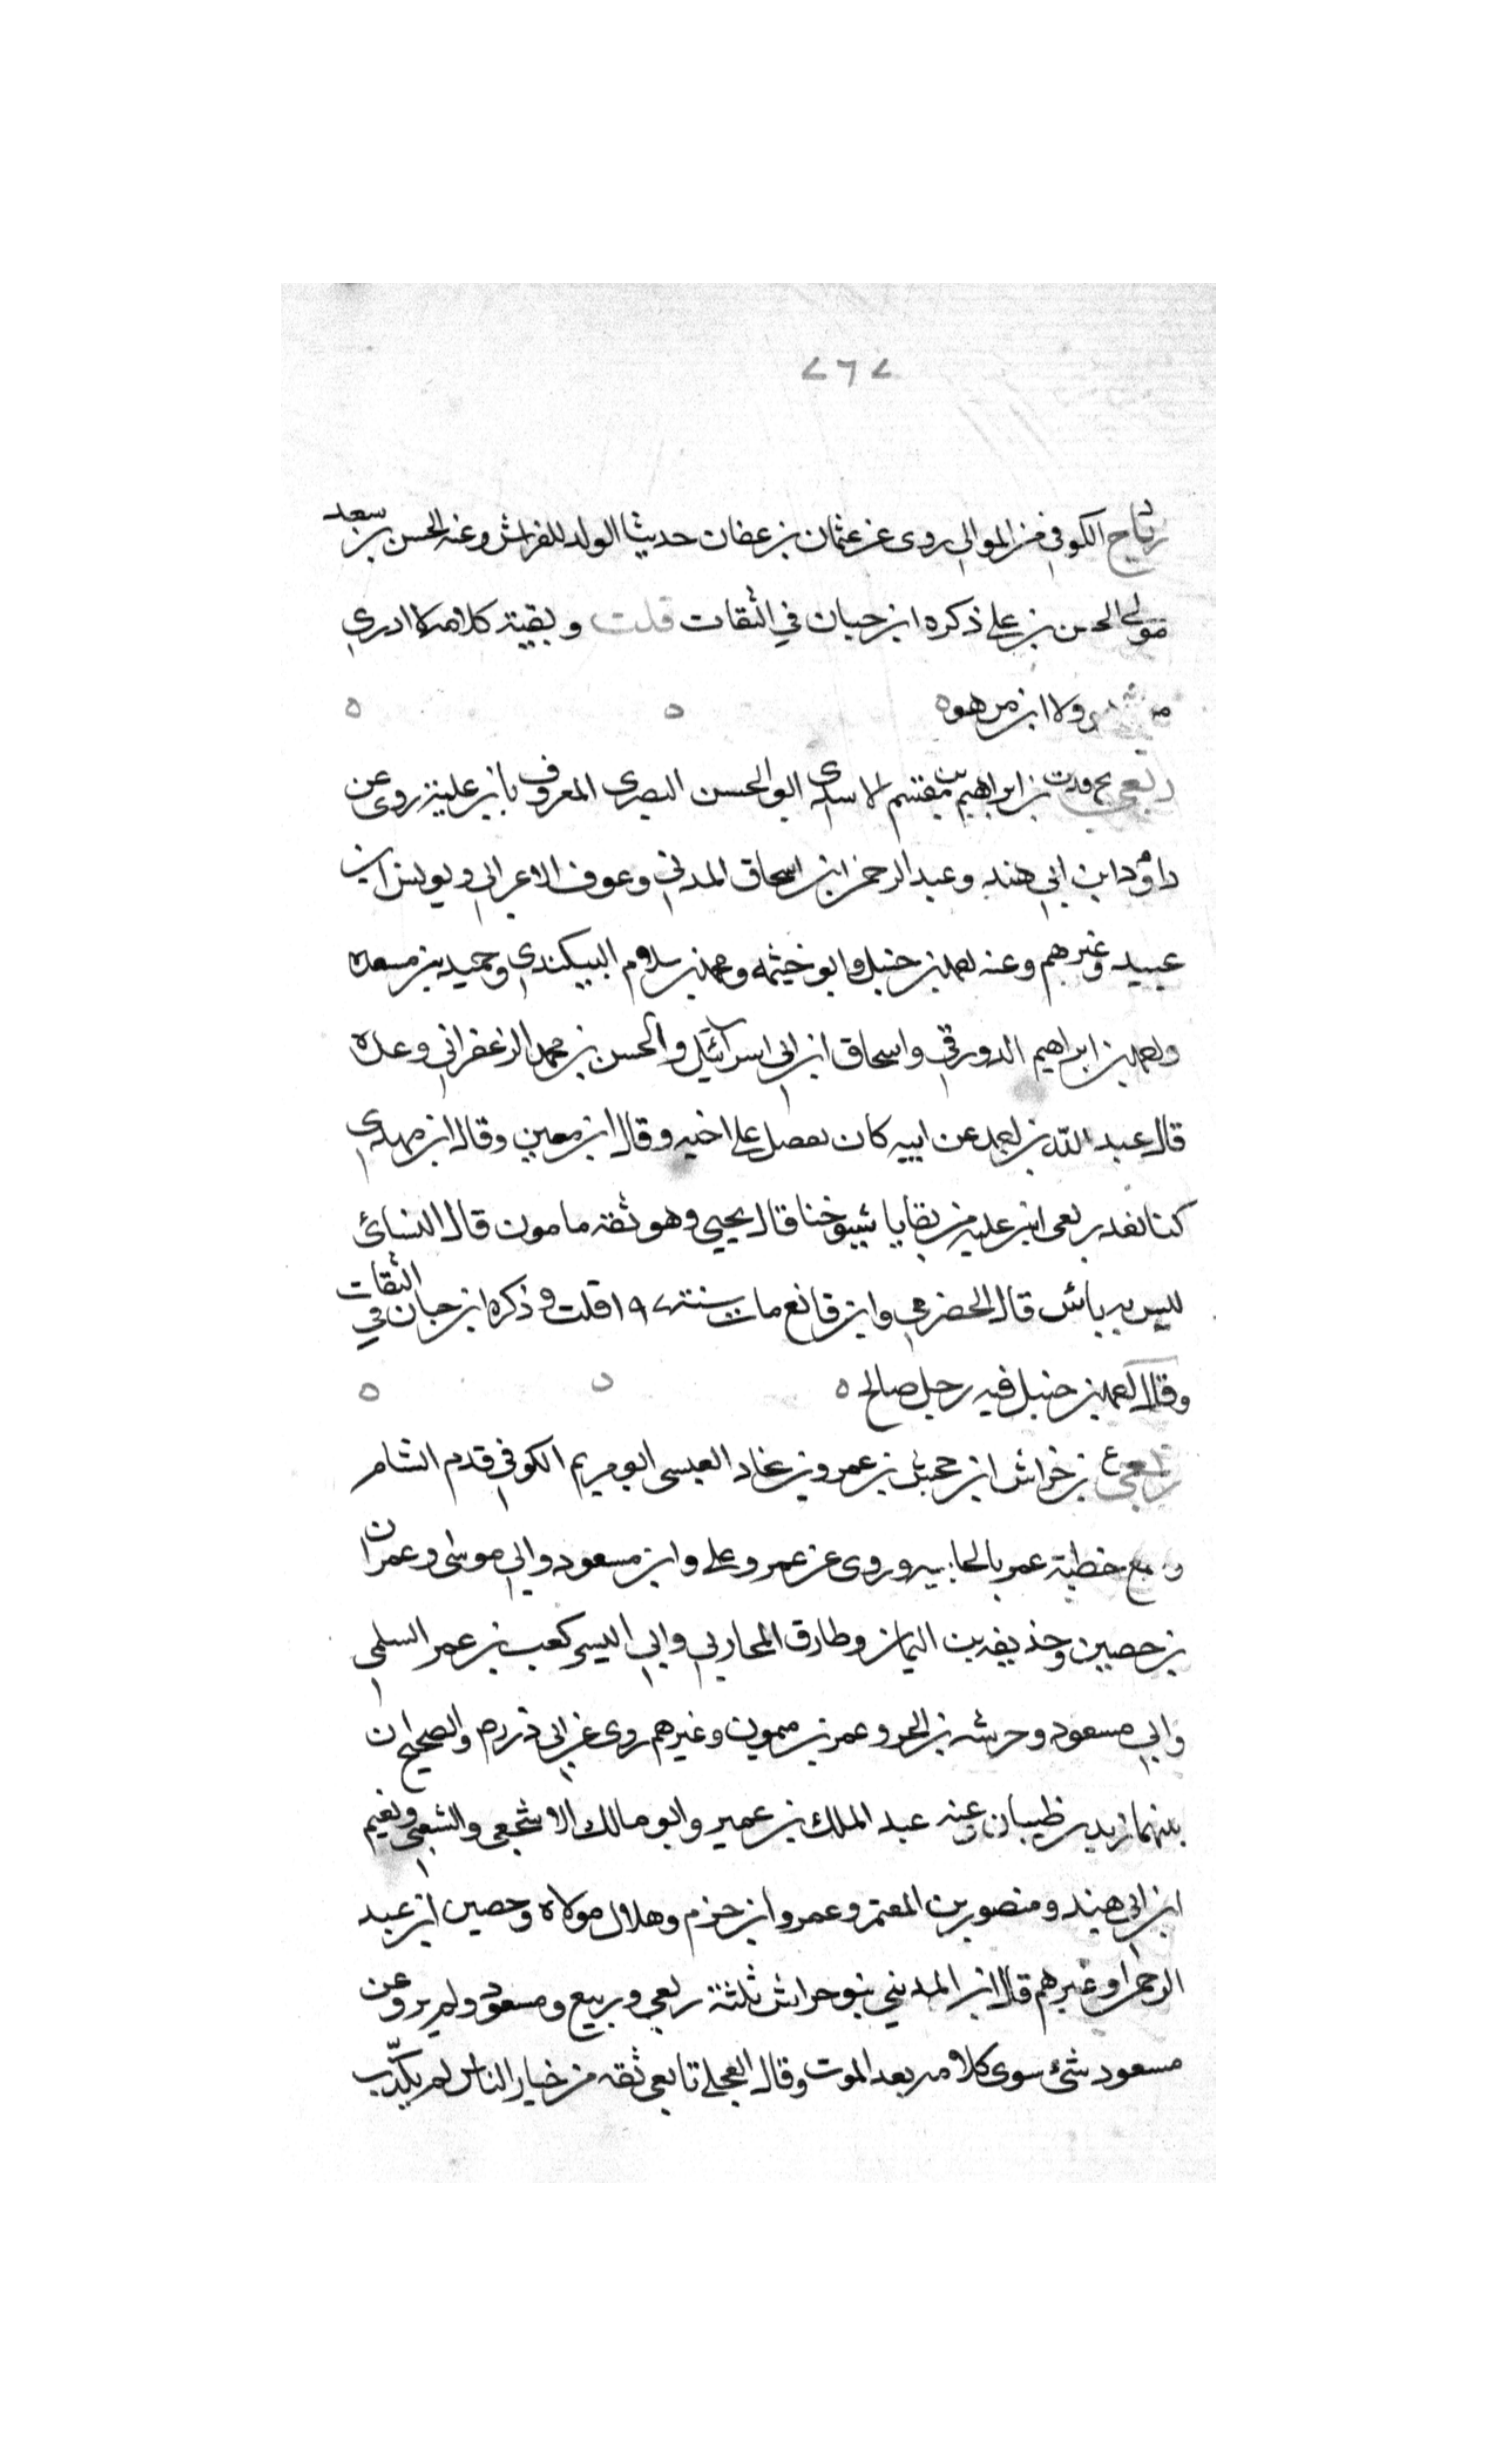 ٧٦٧
رباح الكوفي من الموالي روى عن عثمان بن عفان حديثا الولد للفراش وعنه الحسن بن سعد
مولى الحسن بن علي ذكره ابن حبان في الثقات قلت وبقية كلامه لا ادري
من هو ولا ابن من هو ه
ربعي بن ابراهيم بن مقسم الاسدي ابو الحسن البصري المعروف بابن علية روى عن
داؤد ابن ابي هند وعبد الرحمن ابن اسحاق المدني وعوف الاعرابي ويونس ابن
عبيد وغيرهم وعنه احمد بن حنبل وابو خيثمه ومحمد بن سلام البيكندي وحميد بن مسعده
واحمد بن ابراهيم الدورقي واسحاق ابن ابي اسرائيل والحسن بن محمد الزعفراني وعده
قال عبد الله بن احمد عن ابيه كان يفضل على اخيه وقال ابن معين وقال ابن مهدي
كنا نعد ربعي ابن عليه من بقايا شيوخنا قال يحيى وهو ثقه مامون قال النسائ
ليس به بائس قال الحضرمي وابن قانع مات سنة ١٩٧ قلت وذكره ابن حبان في الثقات
وقال احمد بن حنبل فيه رجل صالح ه
ربعي ع بن خراش ابن جحش بن عمرو بن عاد العبسى ابو مريم الكوفي قدم الشام
وسمع خطبة عمر بالجابيه وروى عن عمر وعلى وابن مسعود وابي موسى وعمران
بن حصين وحذيفه بن اليمان وطارق المحاربي وابي اليسر كعب بن عمر السلمي
وابي مسعود وخرشه بن الحر وعمر بن ميمون وغيرهم روى عن ابي ذر رض والصحيح ان
بينهما زيد بن ظبيان وعنه عبد الملك بن عمير وابو مالك الاشجعي والشعبي ونعيم
ابن ابي هند ومنصور بن المعتمر وعمرو ابن حزم وهلال مولاه وحصين ابن عبد
الرحمن وغيرهم قال ابن المديني بنو حراش ثلثة ربعي وربيع ومسعود ولم يرو عن
مسعود شئ سوى كلامه بعد الموت وقال العجلي تابعي ثقه من خيار الناس لم يكذب